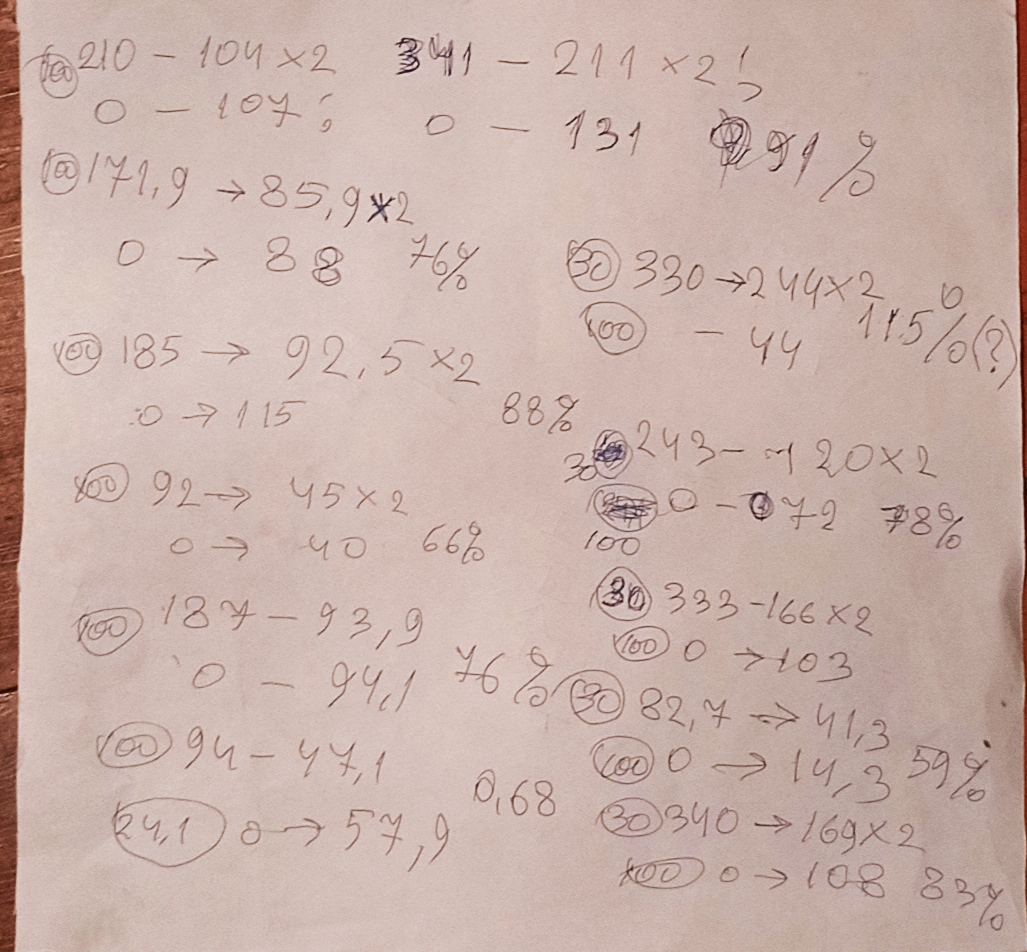 100 210 - 104 x 2
0 - 107 ;
341 - 211 x 2 ;
0 - 131 91%
100 171,9 → 85,9 x 2
0 → 88 76%
100 185 → 92,5 x 2
0 → 115 88%
100 92 → 45 x 2
0 → 40 66%
100 187 - 93,9
0 - 94,1 76%
100 94 - 47,1
24,1 0 → 57,9 0,68
30 330 → 244 x 2
100 - 44 115% (?)
30 243 - 120 x 2
0 - 72 78%
100
30 333 - 166 x 2
100 0 → 103
30 82,7 → 41,3
100 0 → 14,3 59%
30 340 → 169 x 2
100 0 → 108 83%